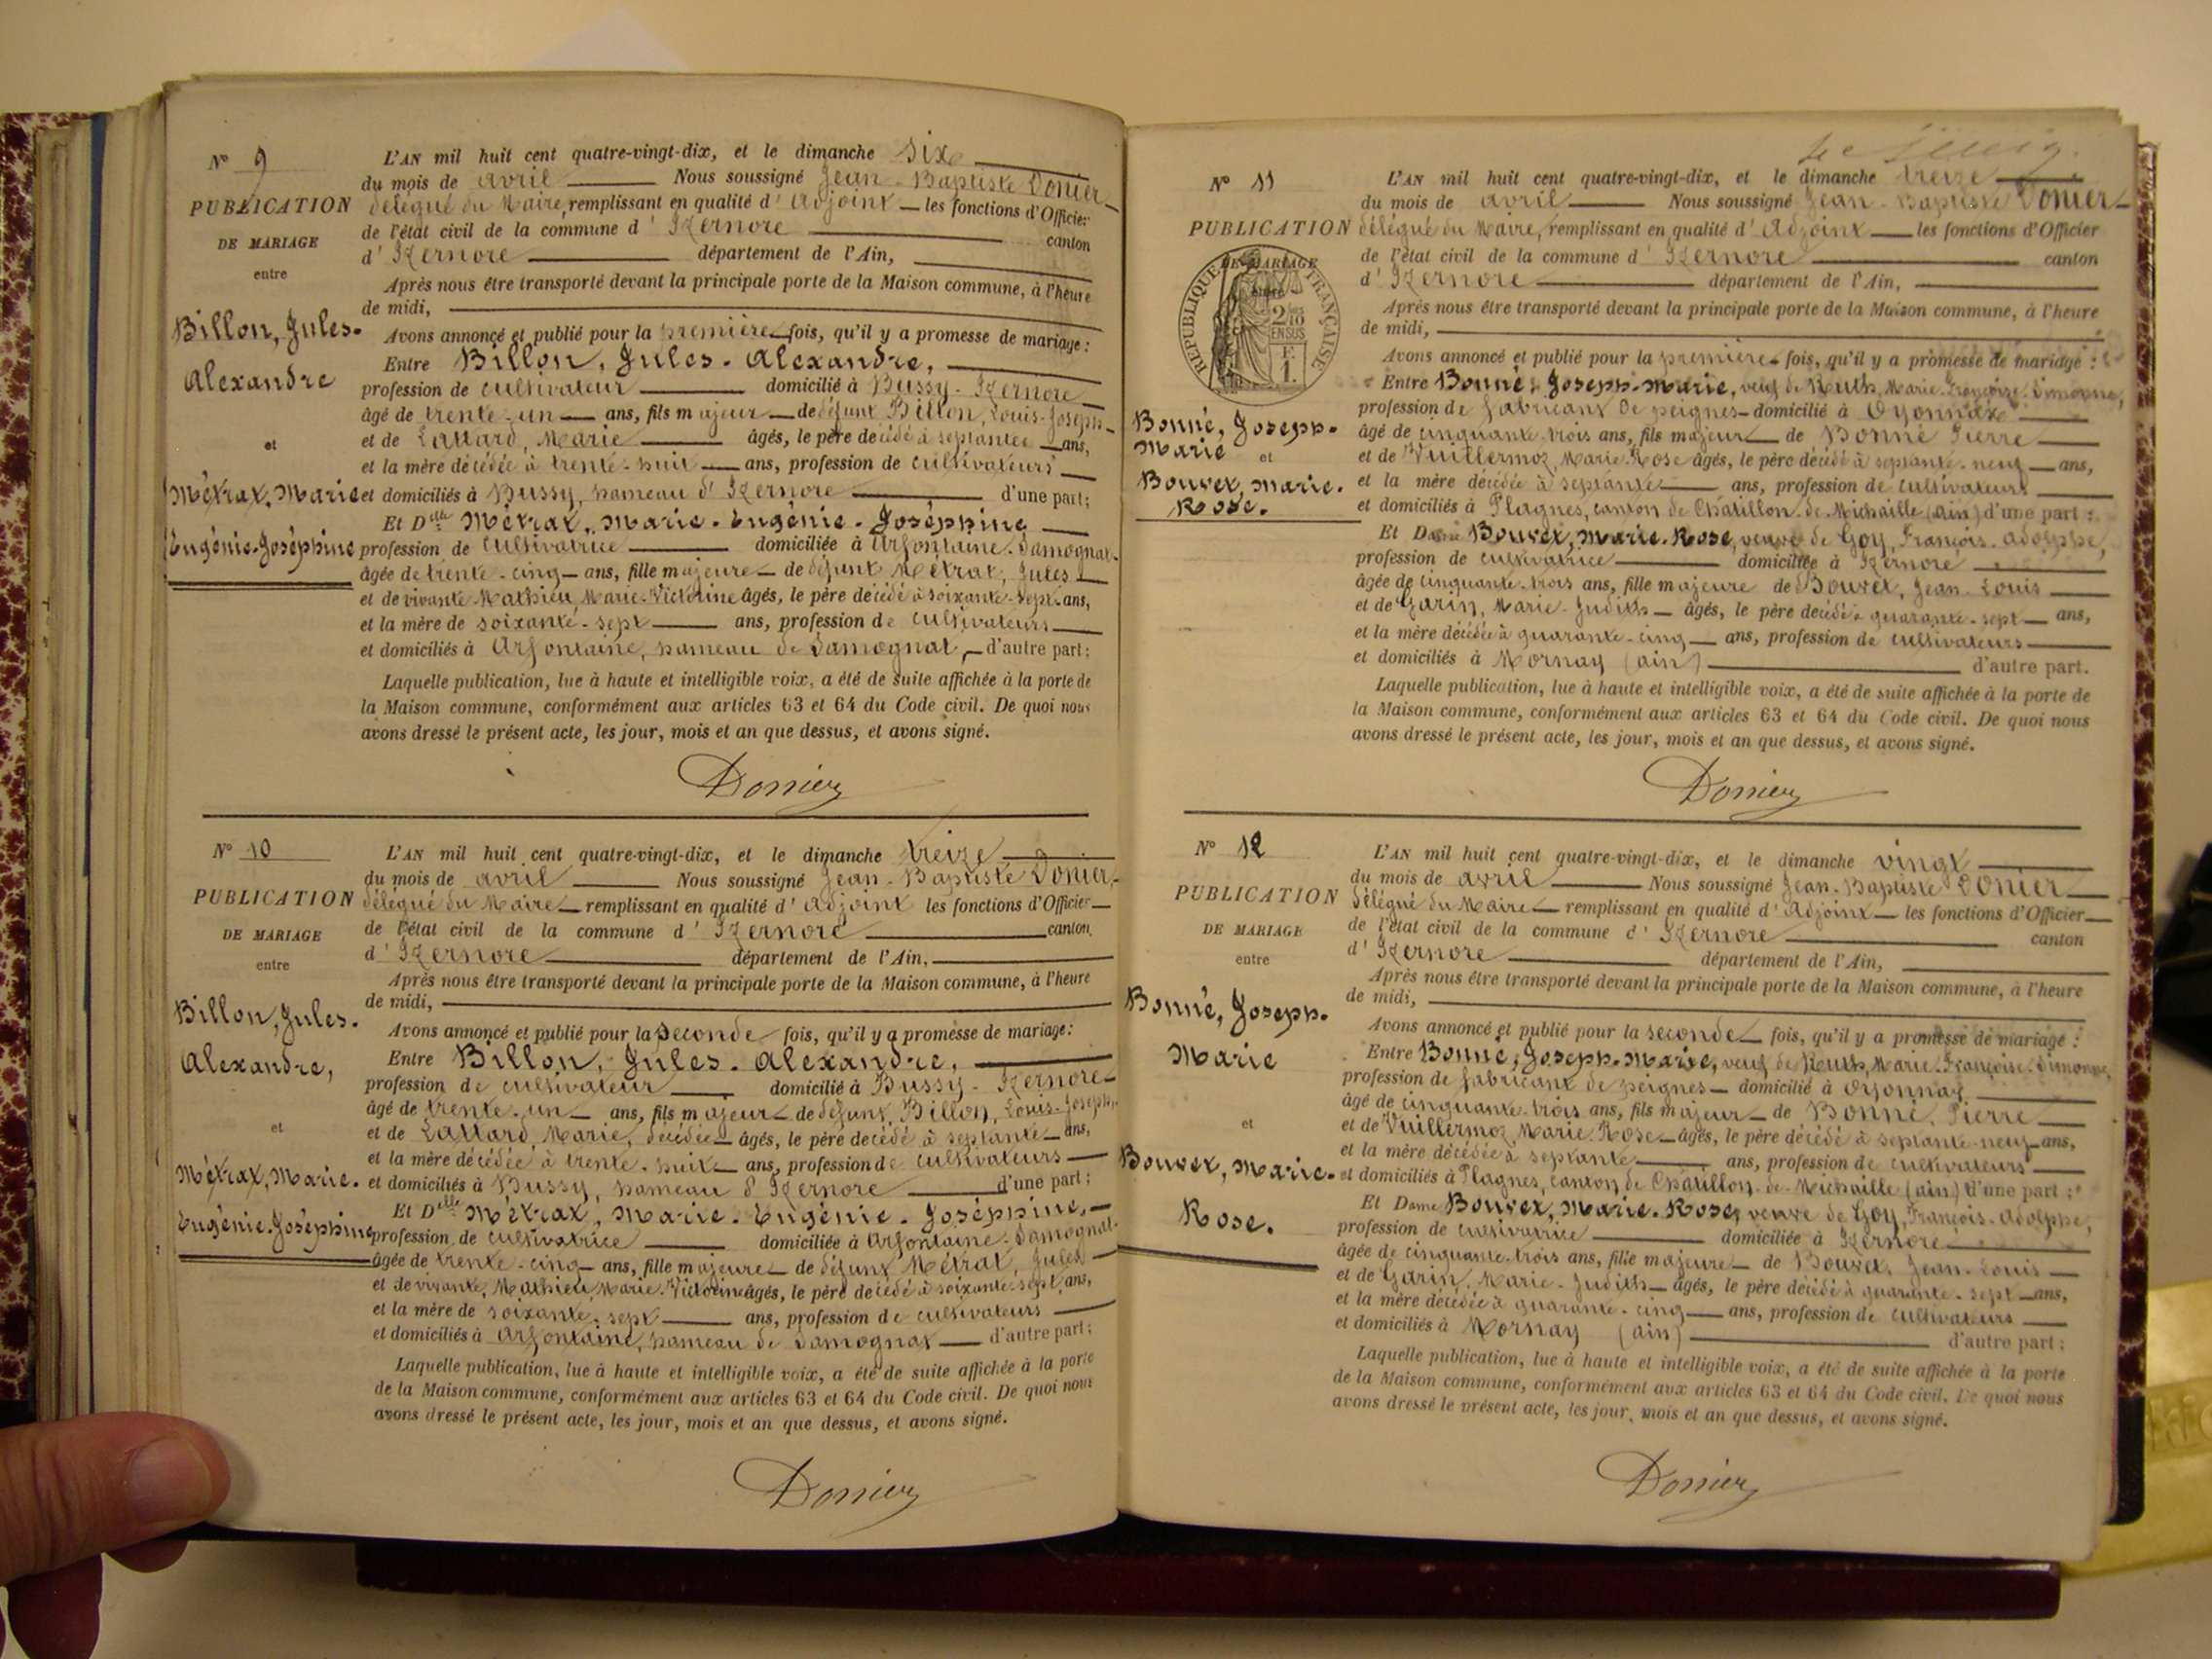 N° 9
PUBLICATION
DE MARIAGE
entre
Billon, Jules-
Alexandre
et
Métrat, Marie
Eugénie-Joséphine
L'AN mil huit cent quatre-vingt-dix, et le dimanche six
du mois de avril Nous soussigné Jean-Baptiste Donier
délégué du Maire, remplissant en qualité d'Adjoint les fonctions d'Officier
de l'état civil de la commune d'Izernore canton
d'Izernore département de l'Ain,
Après nous être transporté devant la principale porte de la Maison commune, à l'heure
de midi,
Avons annoncé et publié pour la première fois, qu'il y a promesse de mariage :
Entre Billon, Jules-Alexandre,
profession de cultivateur domicilié à Bussy-Izernore
âgé de trente-un ans, fils majeur de défunt Billon, Louis-Joseph
et de Lattard, Marie âgés, le père décédé à septante ans,
et la mère décédée à trente-huit ans, profession de cultivateurs
et domiciliés à Bussy, hameau d'Izernore d'une part;
Et Dlle Métrat, Marie-Eugénie-Joséphine
profession de cultivatrice domiciliée à Arfontaine-Samognat
âgée de trente-cinq ans, fille majeure de défunt Métrat, Jules
et de vivante Mathieu, Marie-Victorine âgés, le père décédé à soixante-sept ans,
et la mère de soixante-sept ans, profession de cultivateurs
et domiciliés à Arfontaine, hameau de Samognat, d'autre part;
Laquelle publication, lue à haute et intelligible voix, a été de suite affichée à la porte de
la Maison commune, conformément aux articles 63 et 64 du Code civil. De quoi nous
avons dressé le présent acte, les jour, mois et an que dessus, et avons signé.
Donier
N° 10
PUBLICATION
DE MARIAGE
entre
Billon, Jules-
Alexandre,
et
Métrat, Marie-
Eugénie-Joséphine
L'AN mil huit cent quatre-vingt-dix, et le dimanche treize
du mois de avril Nous soussigné Jean-Baptiste Donier,
délégué du Maire remplissant en qualité d'Adjoint les fonctions d'Officier
de l'état civil de la commune d'Izernore canton
d'Izernore département de l'Ain,
Après nous être transporté devant la principale porte de la Maison commune, à l'heure
de midi,
Avons annoncé et publié pour la seconde fois, qu'il y a promesse de mariage :
Entre Billon, Jules-Alexandre,
profession de cultivateur domicilié à Bussy-Izernore
âgé de trente-un ans, fils majeur de défunt Billon, Louis-Joseph,
et de Lattard, Marie, décédée âgés, le père décédé à septante ans,
et la mère décédée à trente-huit ans, profession de cultivateurs
et domiciliés à Bussy, hameau d'Izernore d'une part;
Et Dlle Métrat, Marie-Eugénie-Joséphine,
profession de cultivatrice domiciliée à Arfontaine-Samognat
âgée de trente-cinq ans, fille majeure de défunt Métrat, Jules
et de vivante, Mathieu, Marie-Victorine âgés, le père décédé à soixante-sept ans,
et la mère de soixante-sept ans, profession de cultivateurs
et domiciliés à Arfontaine, hameau de Samognat d'autre part;
Laquelle publication, lue à haute et intelligible voix, a été de suite affichée à la porte
de la Maison commune, conformément aux articles 63 et 64 du Code civil. De quoi nous
avons dressé le présent acte, les jour, mois et an que dessus, et avons signé.
Donier
N° 11
PUBLICATION
DE MARIAGE
RÉPUBLIQUE FRANÇAISE
2/10
EN SUS
F.
1.
Bonné, Joseph-
Marie
et
Bouvet, Marie-
Rose.
L'AN mil huit cent quatre-vingt-dix, et le dimanche treize
du mois de avril Nous soussigné Jean-Baptiste Donier
délégué du Maire, remplissant en qualité d'Adjoint les fonctions d'Officier
de l'état civil de la commune d'Izernore canton
d'Izernore département de l'Ain,
Après nous être transporté devant la principale porte de la Maison commune, à l'heure
de midi,
Avons annoncé et publié pour la première fois, qu'il y a promesse de mariage :
Entre Bonné, Joseph-Marie, veuf de Marie-Françoise
profession de fabricant de peignes domicilié à Oyonnax
âgé de cinquante-trois ans, fils majeur de Bonné Pierre
et de Vuillermoz, Marie-Rose âgés, le père décédé à septante-neuf ans,
et la mère décédée à septante ans, profession de cultivateurs
et domiciliés à Plagnes, canton de Châtillon-de-Michaille (ain) d'une part :
Et Dame Bouvet, Marie-Rose, veuve de Goy, François-Adolphe,
profession de cultivatrice domiciliée à Izernore
âgée de cinquante-trois ans, fille majeure de Bouvet, Jean-Louis
et de Garin, Marie-Judith âgés, le père décédé à quarante-sept ans,
et la mère décédée à quarante-cinq ans, profession de cultivateurs
et domiciliés à Mornay (ain) d'autre part.
Laquelle publication, lue à haute et intelligible voix, a été de suite affichée à la porte de
la Maison commune, conformément aux articles 63 et 64 du Code civil. De quoi nous
avons dressé le présent acte, les jour, mois et an que dessus, et avons signé.
Donier
N° 12
PUBLICATION
DE MARIAGE
entre
Bonné, Joseph-
Marie
et
Bouvet, Marie-
Rose.
L'AN mil huit cent quatre-vingt-dix, et le dimanche vingt
du mois de avril Nous soussigné Jean-Baptiste Donier
délégué du Maire remplissant en qualité d'Adjoint les fonctions d'Officier
de l'état civil de la commune d'Izernore canton
d'Izernore département de l'Ain,
Après nous être transporté devant la principale porte de la Maison commune, à l'heure
de midi,
Avons annoncé et publié pour la seconde fois, qu'il y a promesse de mariage :
Entre Bonné, Joseph-Marie, veuf de Marie-Françoise
profession de fabricant de peignes domicilié à Oyonnax
âgé de cinquante-trois ans, fils majeur de Bonné, Pierre
et de Vuillermoz, Marie-Rose âgés, le père décédé à septante-neuf ans,
et la mère décédée à septante ans, profession de cultivateurs
et domiciliés à Plagnes, canton de Châtillon-de-Michaille (ain) d'une part ;
Et Dame Bouvet, Marie-Rose, veuve de Goy, François-Adolphe,
profession de cultivatrice domiciliée à Izernore
âgée de cinquante-trois ans, fille majeure de Bouvet, Jean-Louis
et de Garin, Marie-Judith âgés, le père décédé à quarante-sept ans,
et la mère décédée à quarante-cinq ans, profession de cultivateurs
et domiciliés à Mornay (ain) d'autre part ;
Laquelle publication, lue à haute et intelligible voix, a été de suite affichée à la porte
de la Maison commune, conformément aux articles 63 et 64 du Code civil. De quoi nous
avons dressé le présent acte, les jour, mois et an que dessus, et avons signé.
Donier